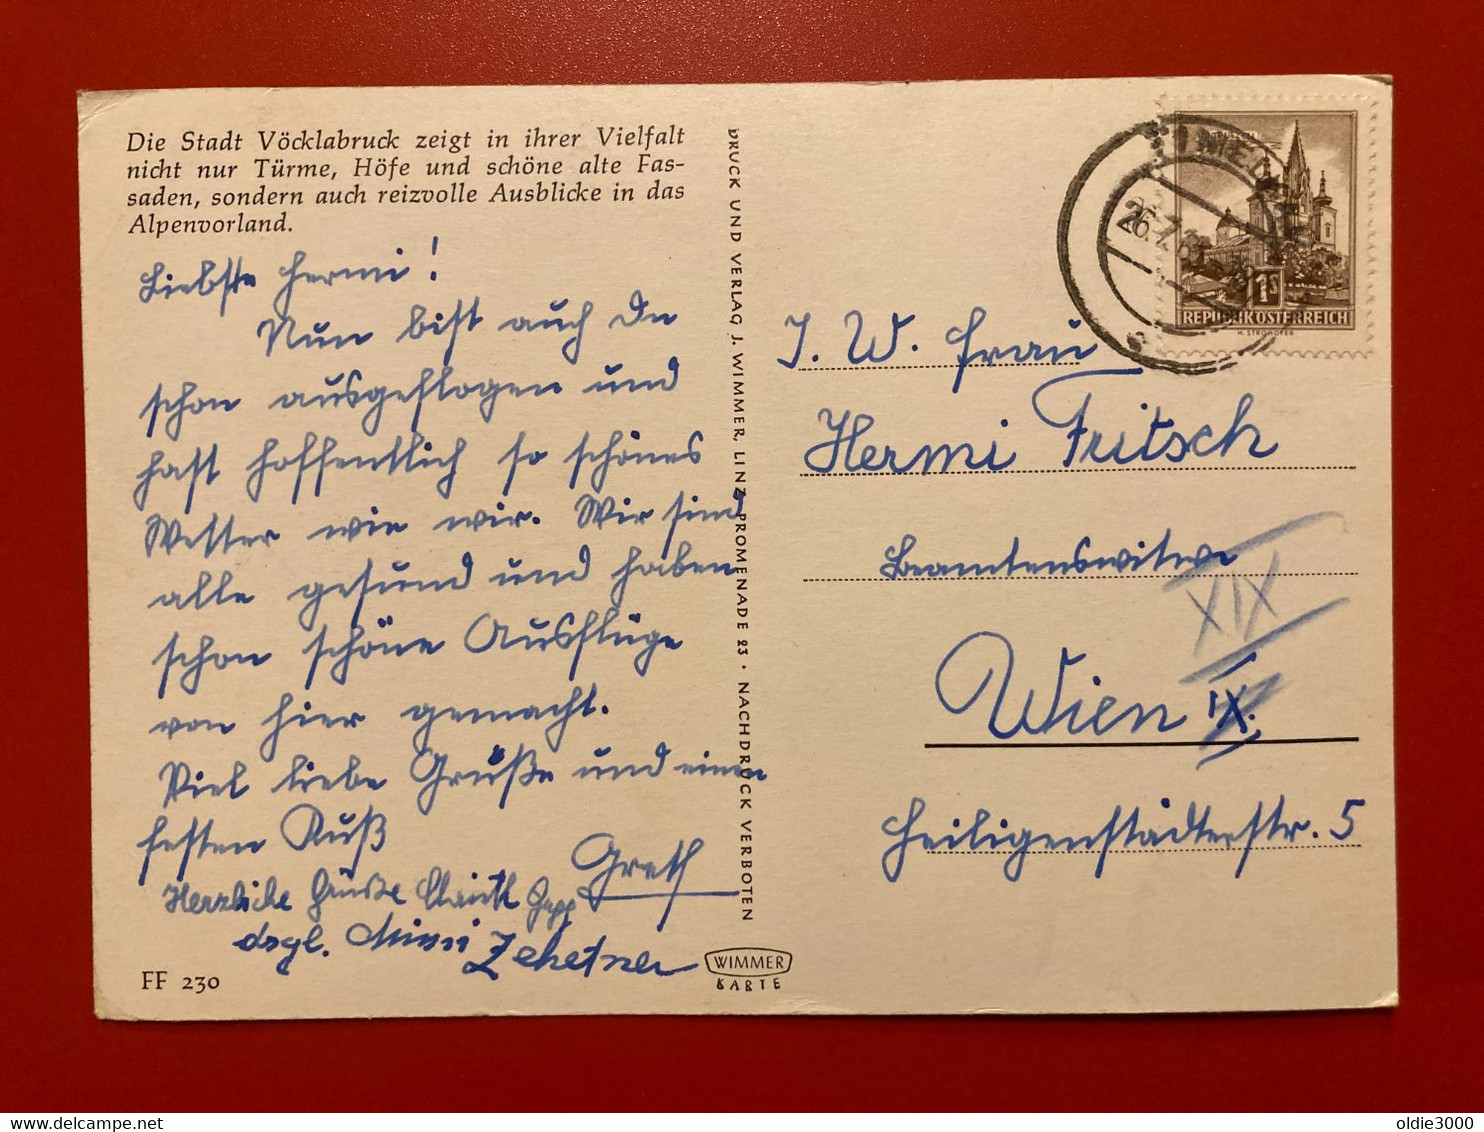 Die Stadt Vöcklabruck zeigt in ihrer Vielfalt
nicht nur Türme, Höfe und schöne alte Fas-
saden, sondern auch reizvolle Ausblicke in das
Alpenvorland.
Liebste Hermi!
Nun bist auch Du
schon ausgeflogen und
hast hoffentlich so schönes
Wetter wie wir. Wir sind
alle gesund und haben
schon schöne Ausflüge
von hier gemacht.
Viel liebe Grüße und einen
festen Kuß
Greth
Herzliche Grüße
dsgl. Mimi Zehetner
FF 230
WIMMER
KARTE
DRUCK UND VERLAG J. WIMMER, LINZ, PROMENADE 23 · NACHDRUCK VERBOTEN
26.7.6
1S
REPUBLIK ÖSTERREICH
H. STROHOFER
I. W. Frau
Hermi Fritsch
Beamtenswitwe
XIX
Wien IX.
Heiligenstädterstr. 5
oldie3000